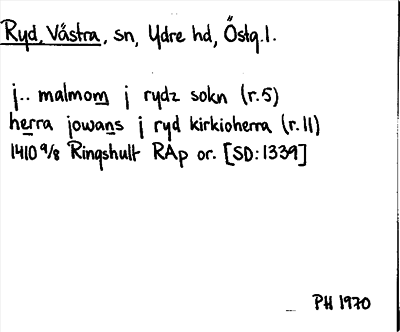 Ryd, Västra, sn, Ydre hd, Östg.l.
j.. malmom j rydz sokn (r.5)
herra jowans j ryd kirkioherra (r.11)
1410 9/8 Ringshult RAp or. [SD:1339]
PH 1970